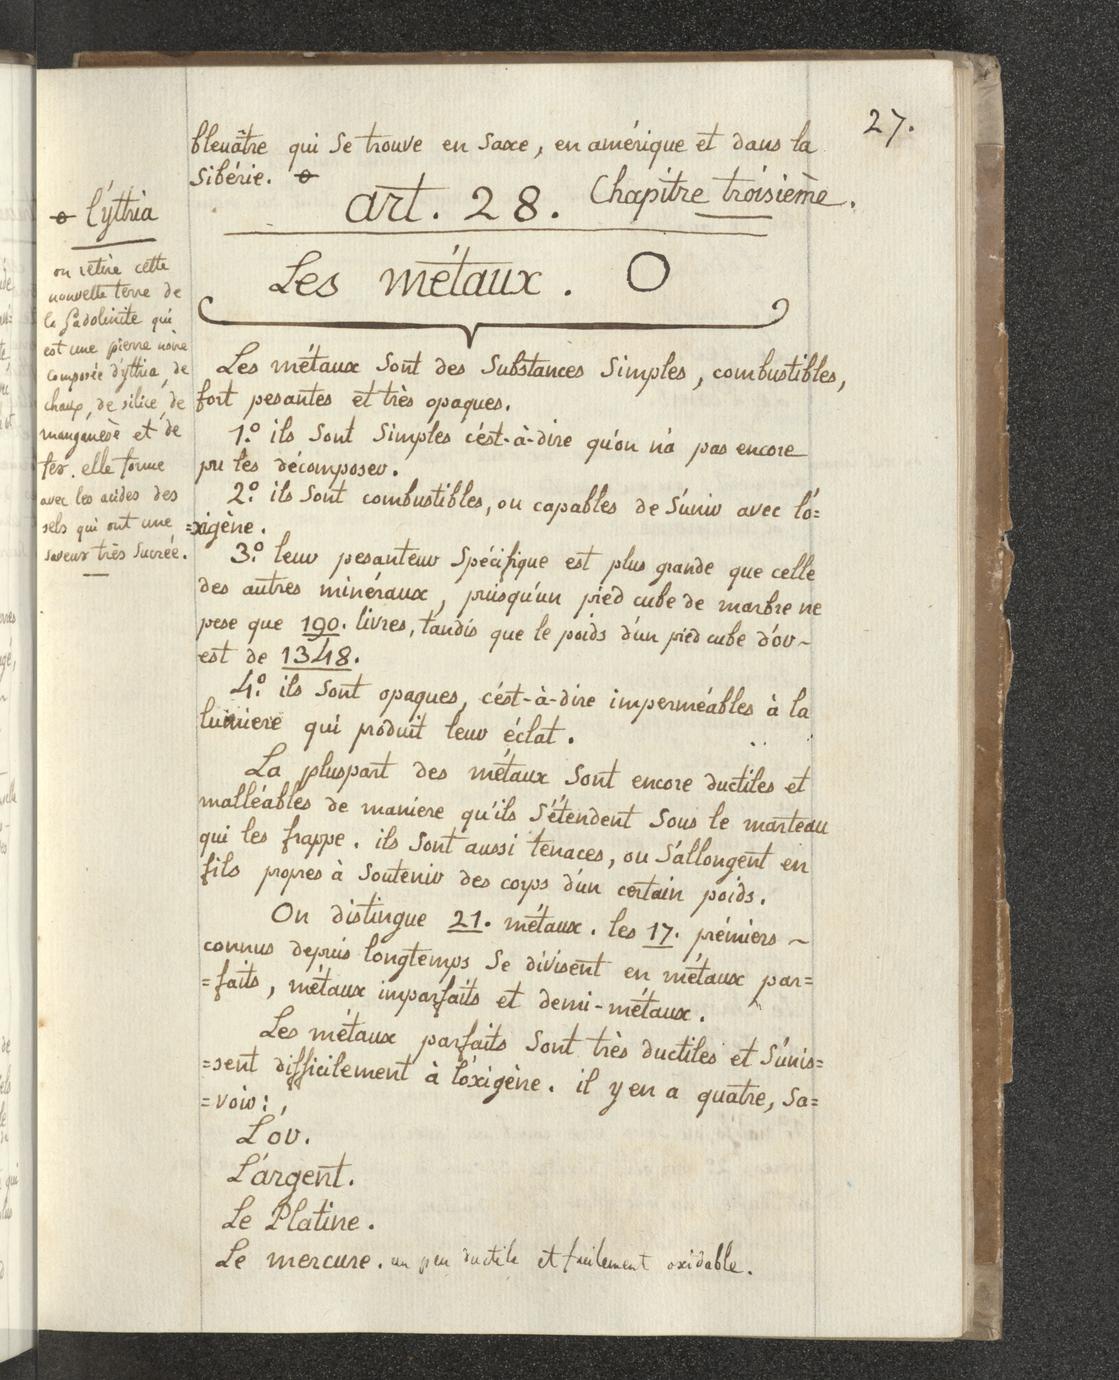 27.
bleuâtre qui se trouve en saxe, en amérique et dans la
sibérie. o
art. 28. Chapitre troisième.
Les métaux. O
o l'ythia
on retire cette
nouvelle terre de
la gadolinite qui
est une pierre noire
composée d'ythia, de
chaux, de silice, de
manganese et de
fer. elle forme
avec les acides des
sels qui ont une
saveur très sucrée.
Les métaux sont des substances simples, combustibles,
fort pesantes et très opaques.
1.º ils sont simples c'ést-à-dire qu'on n'a pas encore
pu les décomposer.
2.º ils sont combustibles, ou capables de s'unir avec l'o=
=xigène.
3.º leur pesanteur spécifique est plus grande que celle
des autres minéraux, puisqu'un pied cube de marbre ne
pese que 190. livres, tandis que le poids d'un pied cube d'or ~
est de 1348.
4.º ils sont opaques, c'ést-à-dire imperméables à la
lumiere qui produit leur éclat.
La pluspart des métaux sont encore ductiles et
malléables de maniere qu'ils s'étendent sous le marteau
qui les frappe. ils sont aussi tenaces, ou s'allongent en
fils propres à soutenir des corps d'un certain poids.
On distingue 21. métaux. les 17. prémiers ~
connus depuis longtemps se divisent en métaux par=
=faits, métaux imparfaits et demi-métaux.
Les métaux parfaits sont très ductiles et s'unis=
=sent difficilement à l'oxigène. il y en a quatre, sa=
=voir:
L'or.
L'argent.
Le Platine.
Le mercure. un peu ductile et facilement oxidable.